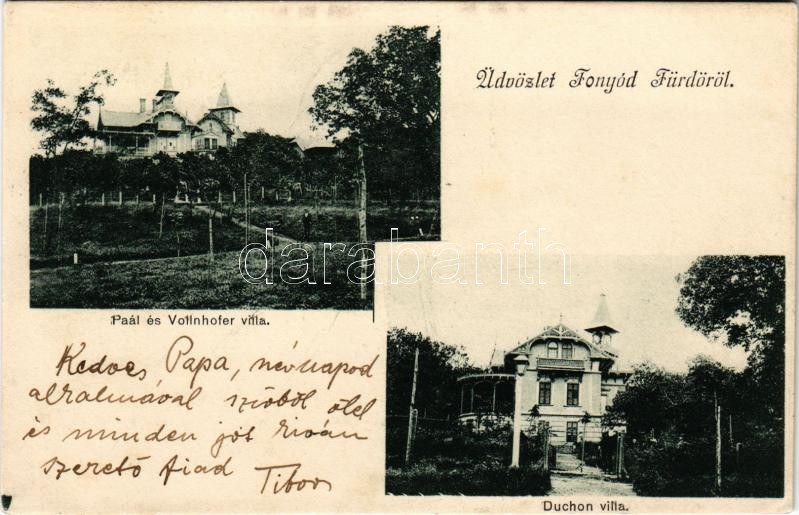 Üdvözlet Fonyód Fürdöröl.
Paál és Vollnhofer villa.
Kedves Papa, névnapod
alkalmával szívből ölel
és minden jót kíván
szerető fiad
Tibor
Duchon villa.
© darabanth.com